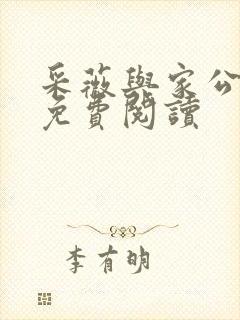 采薇與家公
免費閱讀
李有明